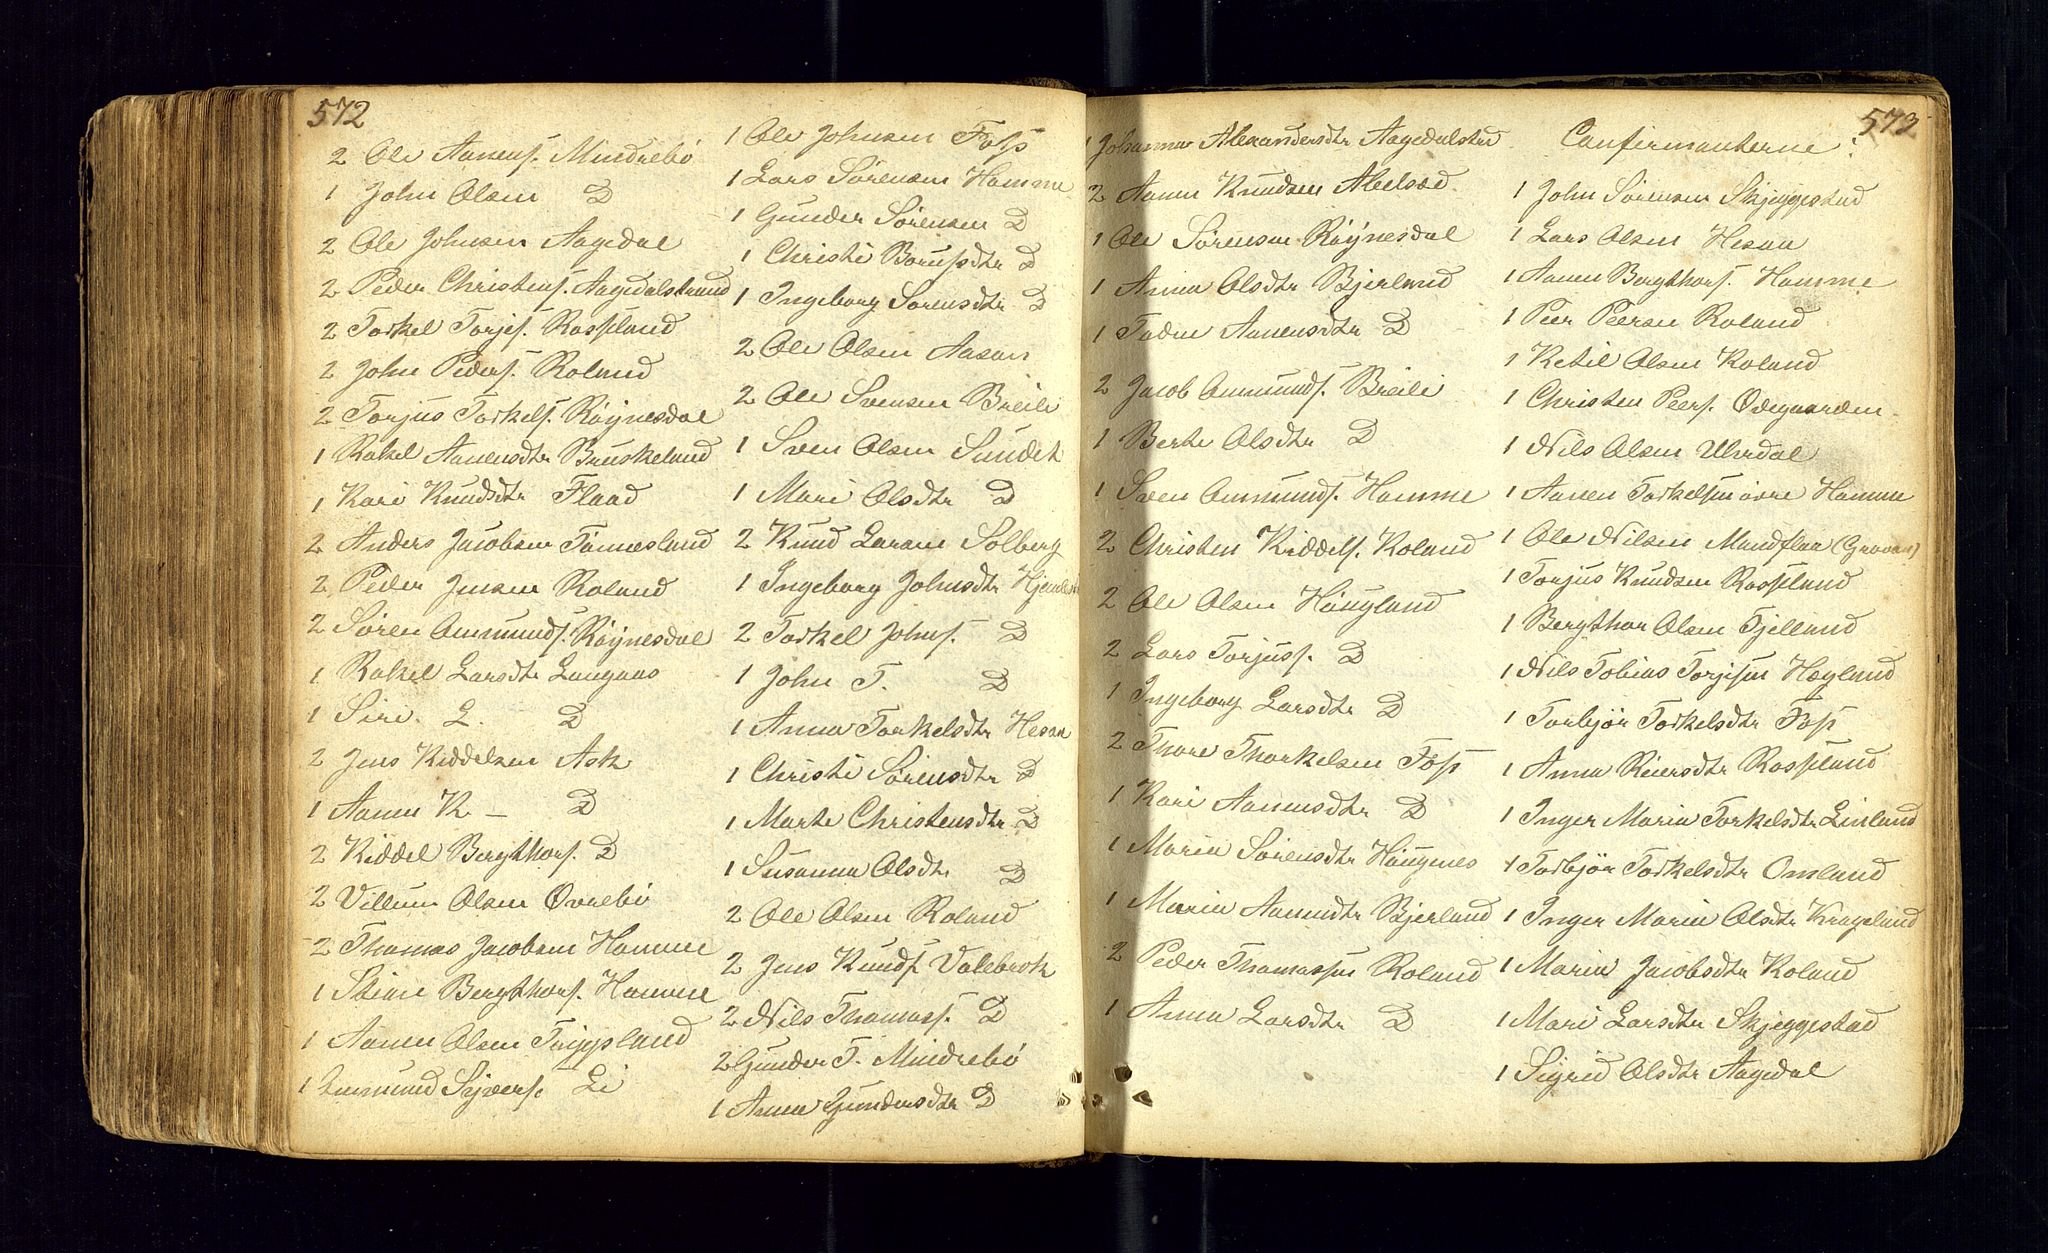 572
2 Ole Aanens. Mindrebö
1 John Olsen D
2 Ole Johnsen Aagedal
2 Peder Christens. Aagedalstrand
2 Torkel Torjes. Rosseland
2 John Peders. Roland
2 Torjus Torkels. Röynesdal
1 Rakel Aanensdtr Bruskeland
1 Kari Knudsdtr Flaad
2 Anders Jacobsen Tönnesland
2 Peder Jensen Roland
2 Sören Ommunds. Röynesdal
1 Rakel Larsdtr Langaas
1 Siri. L. D
2 Jens Kiddelsen Ask
1 Aanen K — D
2 Kiddel Bergthors. D
2 Villum Olsen Övrebö
2 Thomas Jacobsen Homme
1 Stine Bergthors. Homme
1 Aanen Olsen Trygsland
1 Ommund Syvers. Li
1 Ole Johnsen Foss
1 Lars Sörensen Homme
1 Gunder Sörensen D
1 Christi Borussdtr D
1 Ingeborg Sörensdtr D
2 Ole Olsen Aasan
2 Ole Svensen Breili
1 Sven Olsen Sundet
1 Mari Olsdtr D
2 Knud Larsen Solberg
1 Ingeborg Johnsdtr
2 Torkel Johns. D
1 John T. D
1 Anna Torkelsdtr Hesan
1 Christi Sörensdtr D
1 Marte Christensdtr D
1 Susanna Olsdtr D
2 Ole Olsen Roland
2 Jens Knuds. Valebrok
2 Nils Thomass. D
2 Gunder T. Mindrebö
1 Anna Gundersdtr D
573
1 Johanna Alexandersdtr Aagedalstrd
2 Aanen Knudsen Abelsæd.
1 Ole Sörensen Röynesdal
1 Anna Olsdtr Bjerland
1 Aanensdtr D
2 Jacob Ommunds. Breili
1 Berte Olsdtr D
1 Sven Ommunds. Homme
2 Christen Kiddels. Roland
2 Ole Olsen Höugland
2 Lars Torjuss. D
1 Ingeborg Larsdtr D
2 Thore Thorkelsen Foss
1 Kari Aanensdtr D
1 Maria Sörensdtr Höugnes
1 Maria Aanendtr Bjerland
2 Peder Thomassen Roland
1 Anna Larsdtr D
Confirmanterne:
1 John Sörensen Skjeggestad
1 Lars Olsen Hesan
1 Aanen Bergthors. Homme
1 Peer Peersen Roland
1 Ketil Olsen Roland
1 Christen Peers. Ödegaarden
1 Nils Olsen Uhrdal
1 Aanen Torkelsen övre Homme
1 Ole Nilsen Mundflaa (Grovan)
1 Torjus Knudsen Rosseland
1 Bergthor Olsen Fjelland
1 Nils Tobias Torjesen Hægland
1 Torbjör Torkelsdtr Foss
1 Anna Reiersdtr Rossland
1 Inger Maria Torkelsdtr Linland
1 Torbjör Torkelsdtr Omland
1 Inger Maria Olsdtr Krageland
1 Maria Jacobsdtr Roland
1 Mari Larsdtr Skjeggestad
1 Sigrid Olsdtr Aagedal